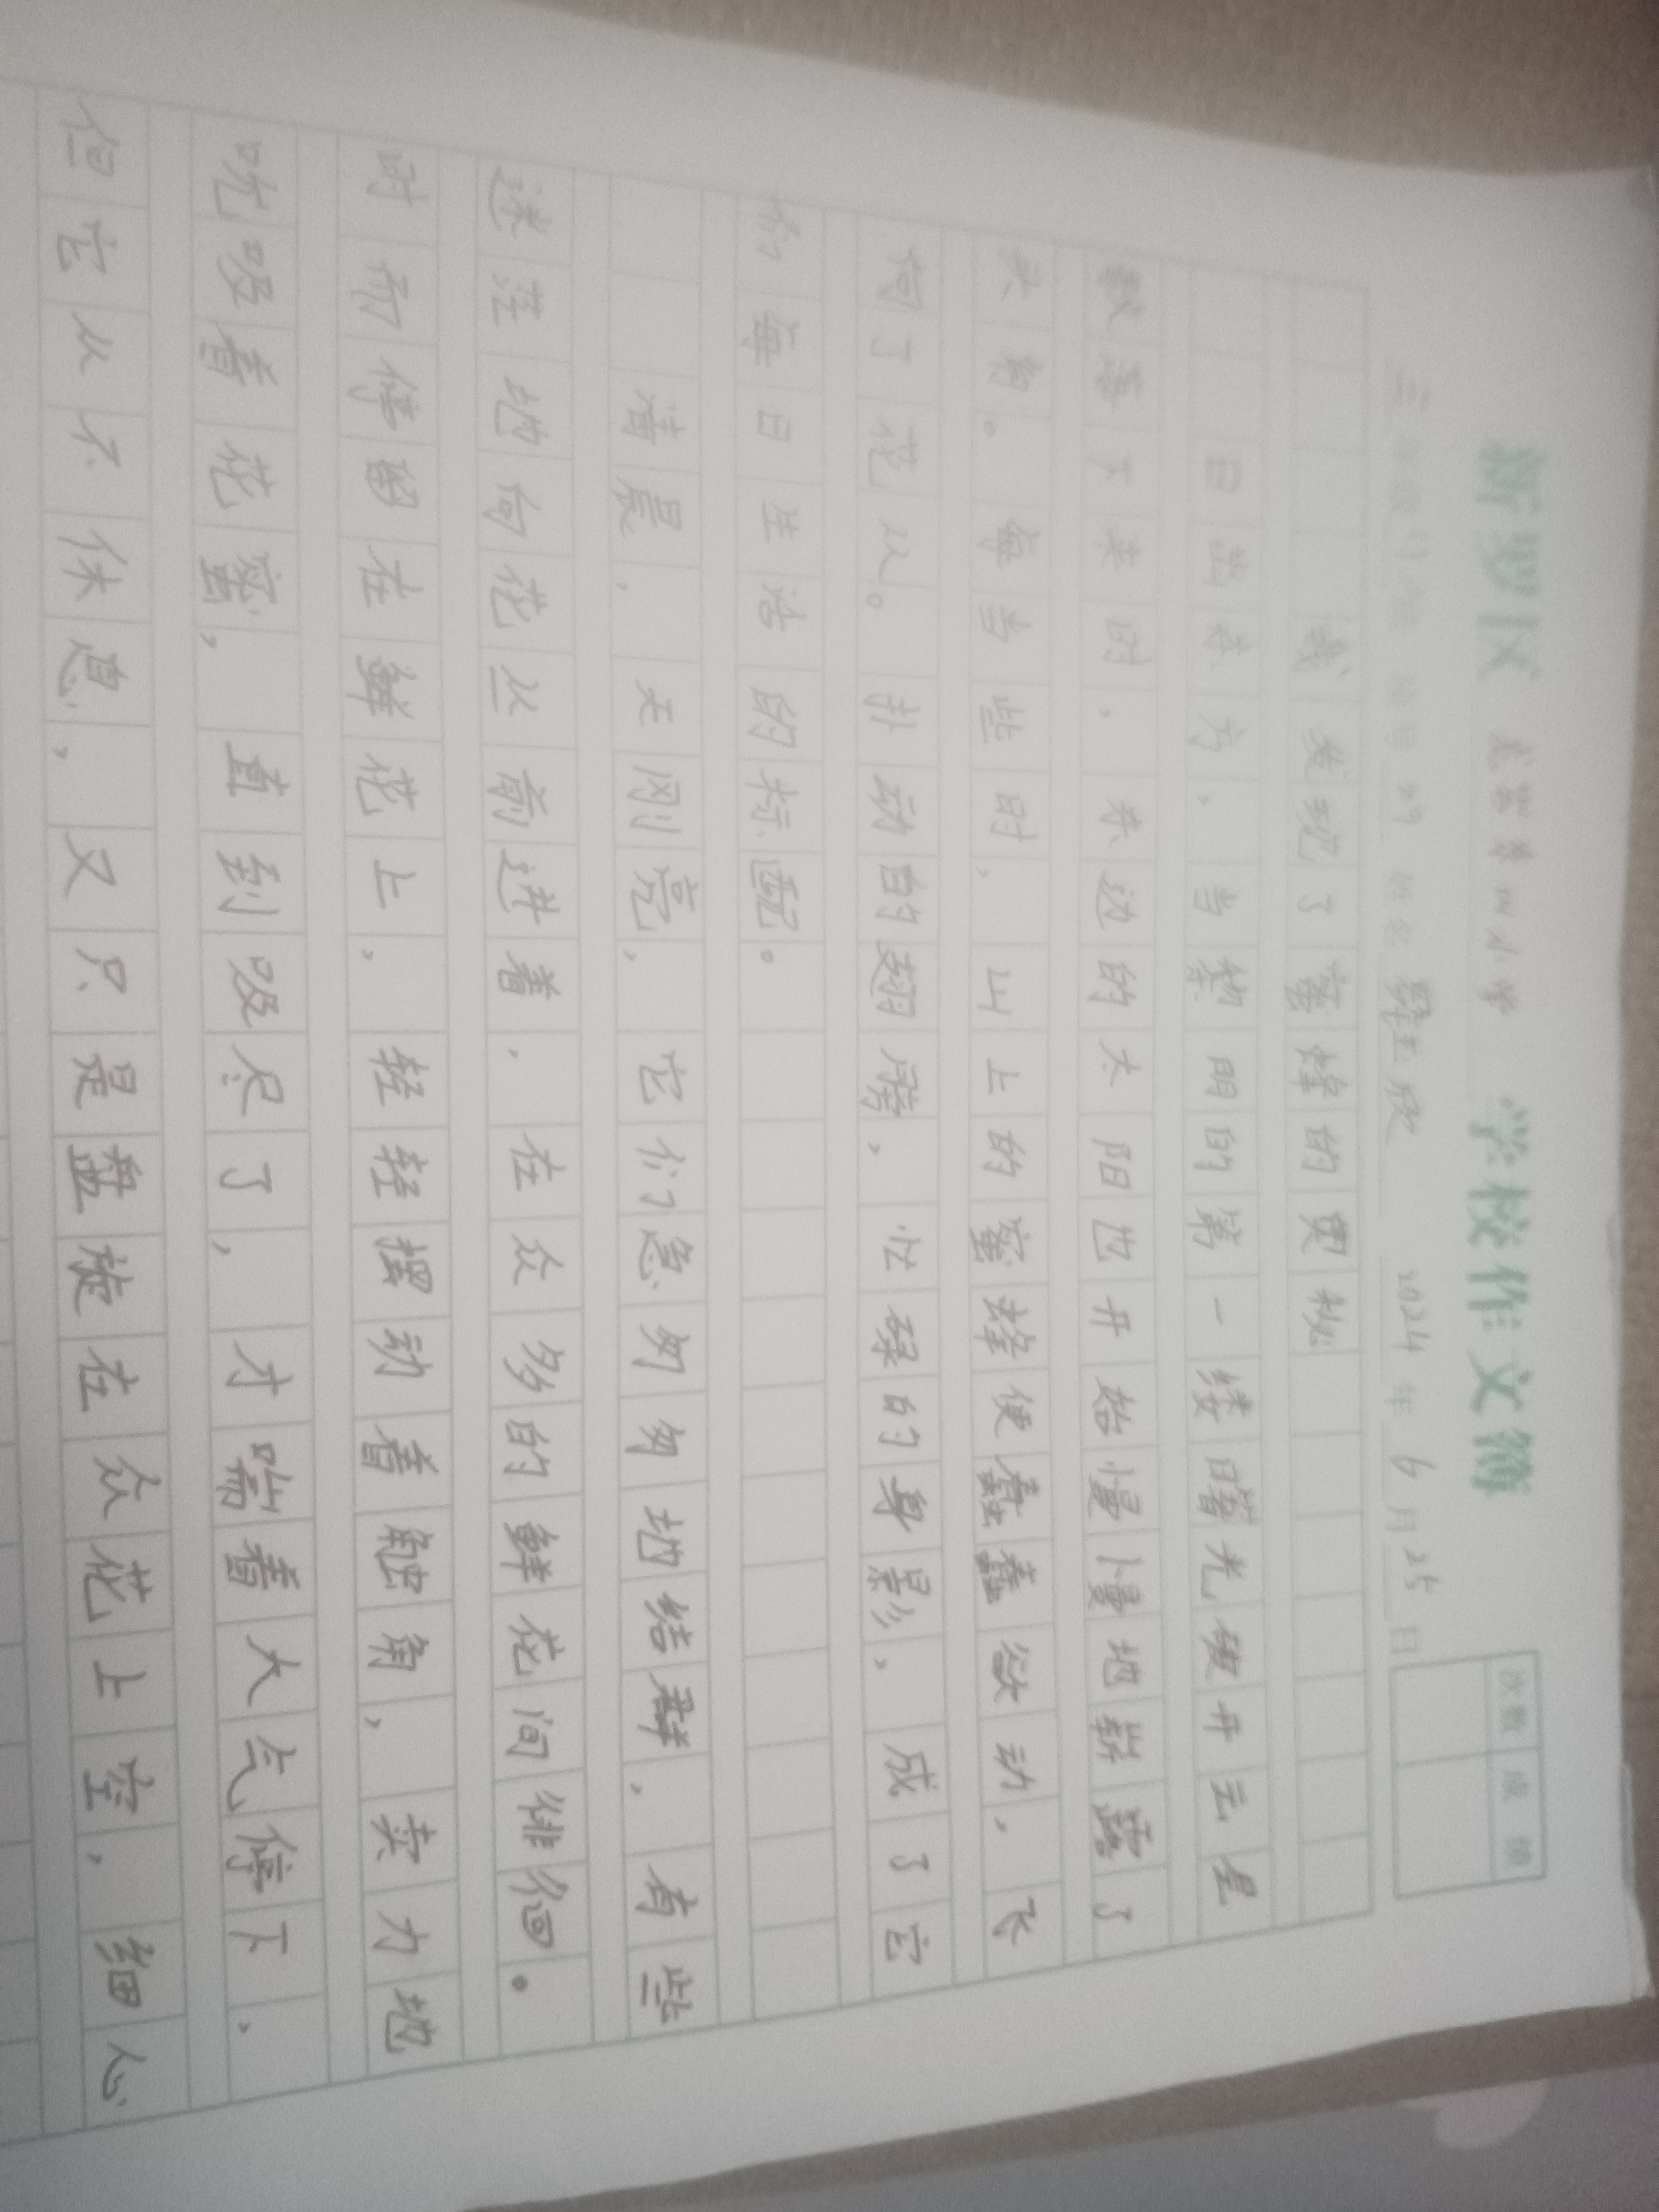 新罗区 龙岩第四小学 学校作文簿
三 年级 班 座号 29 姓名 2024年6月25日
次数 成绩
我发现了蜜蜂的奥秘
日出东方,当黎明的第一缕曙光破开云层
数落下来时,东边的太阳也开始慢慢地崭露了
头角。每当些时,山上的蜜蜂便蠢蠢欲动,飞
向了花从。扑动的翅膀,忙碌的身影,成了它
们每日生活的标配。
清晨,天刚亮,它们急匆匆地结群,有些
迷茫地向花丛前进着,在众多的鲜花间徘徊.
时而停留在鲜花上,轻轻摆动着触角,卖力地
吮吸着花蜜,直到吸尽了,才喘着大气停下,
但它从不休息,又只是盘旋在众花上空,细心